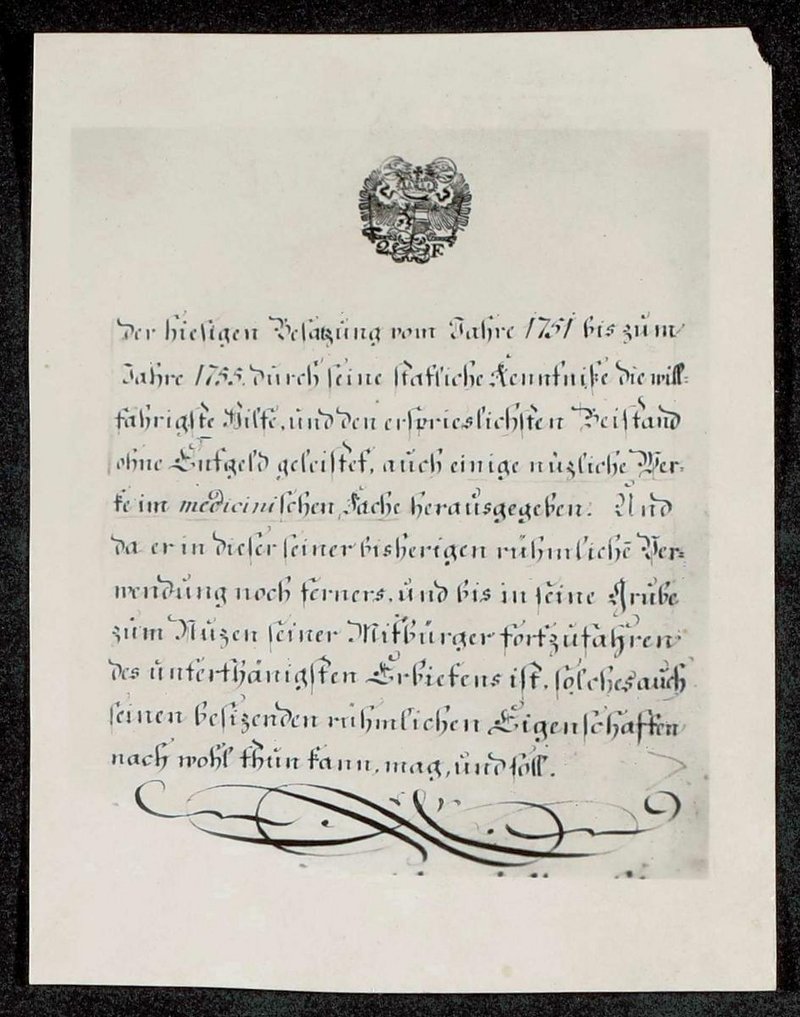 2. F.
der hiesigen Besatzung vom Jahre 1751 bis zum
Jahre 1755. durch seine stattliche Kenntniße die will=
fährigste Hilfe, und den ersprieslichsten Beistand
ohne Entgeld geleistet, auch einige nüzliche Wer=
ke im medicinischen Fache herausgegeben. Und
da er in dieser seiner bisherigen rühmlichē Ver=
wendung noch ferners, und bis in seine Grube
zum Nuzen seiner Mitbürger fortzufahren
des unterthänigsten Erbietens ist, solches auch
seinen besizenden rühmlichen Eigenschaften
nach wohl thun kann, mag, und soll.